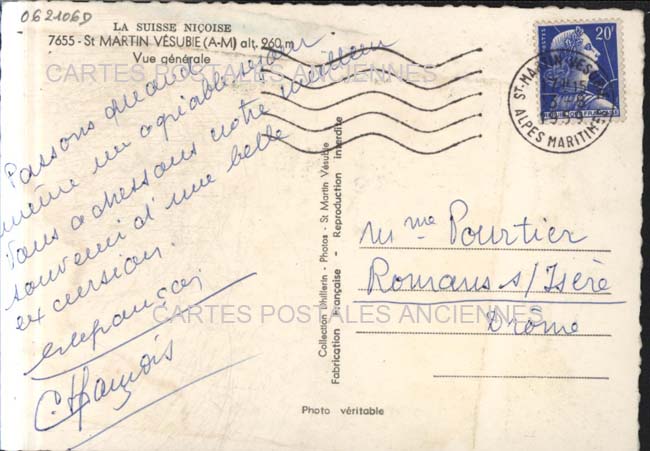 062106D
LA SUISSE NIÇOISE
7655 - St MARTIN VÉSUBIE (A-M) alt. 960 m
Vue générale
CARTES POSTALES ANCIENNES
Passons quand
même un agréable séjour
Vous adressons notre meilleur
souvenir d'une belle
excursion.
20F
POSTES
ST-MARTIN-VÉSUBIE
ALPES MARITIMES
Collection Uhillerin - Photos - St Martin Vésubie
Fabrication Française - Reproduction interdite
Mme Pourtier
Romans s/Isère
Drôme
CARTES POSTALES ANCIENNES
Photo véritable